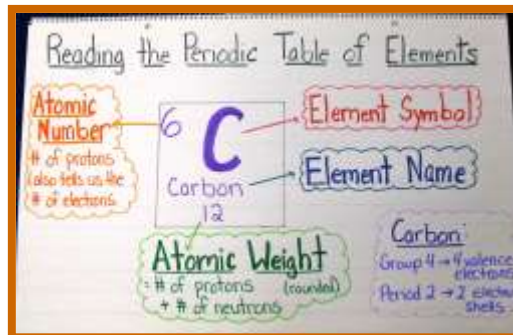 Reading the Periodic Table of Elements
Atomic
Number
# of protons
(also tells us the
# of electrons
6
C
Carbon
12
Element Symbol
Element Name
Atomic Weight
= # of protons (rounded)
+ # of neutrons
Carbon:
Group 4 → 4 valence
electrons
Period 2 → 2 electron
shells